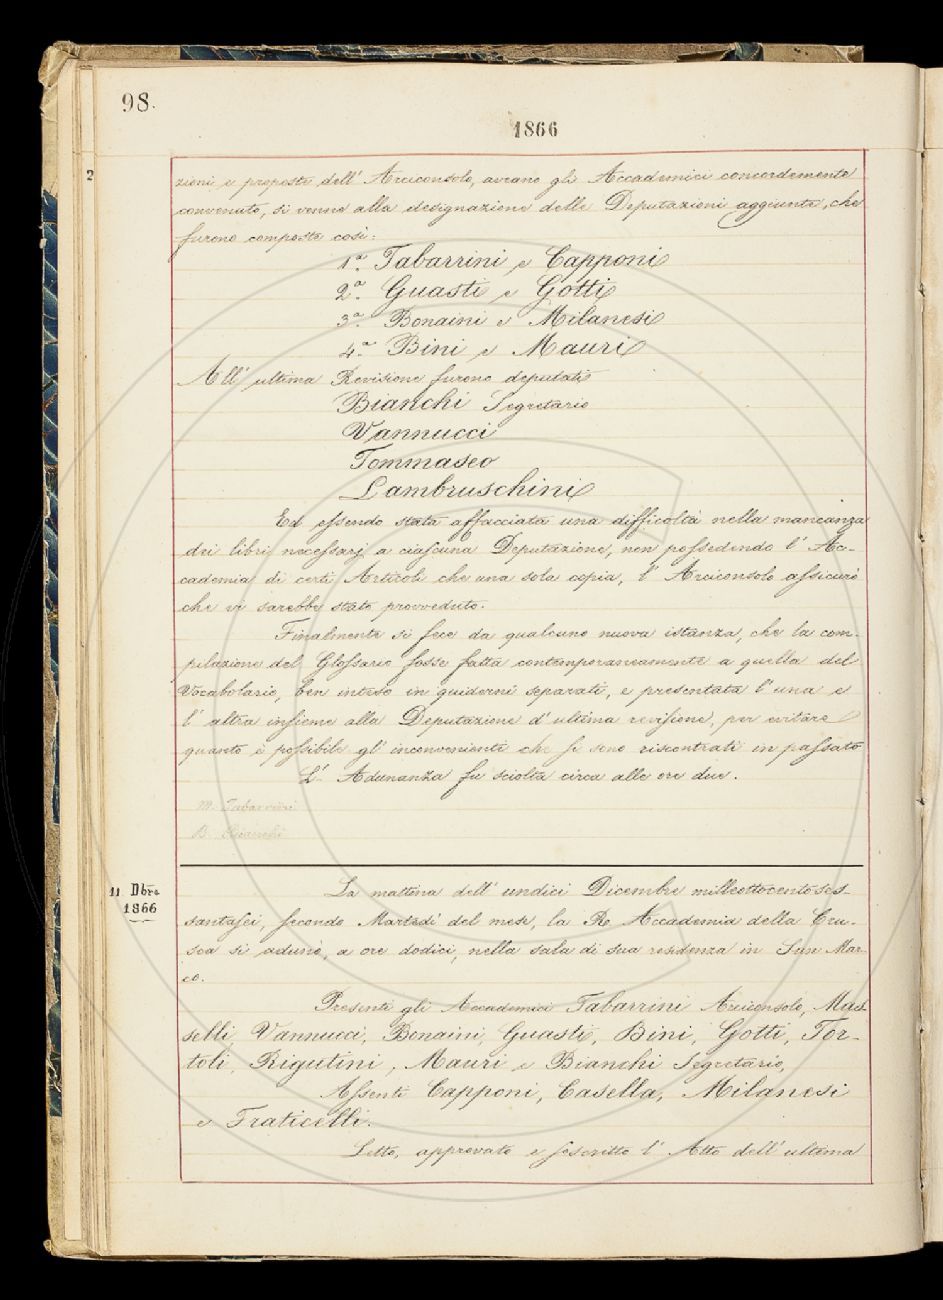 98.
1866
2
zioni e proposte dell' Arciconsolo, aveano gli Accademici concordemente
convenuto, si venne alla designazione delle Deputazioni aggiunte, che
furono composte così:
1ª. Tabarrini e Capponi
2ª. Guasti e Gotti
3ª. Bonaini e Milanesi
4.ª Bini e Mauri
All' ultima Revisione furono deputati
Bianchi Segretario
Vannucci
Tommaseo
Lambruschini
Ed essendo stata affacciata una difficoltà nella mancanza
dei libri necessarj a ciascuna Deputazione, non possedendo l' Ac-
cademia di certi Articoli che una sola copia, l' Arciconsolo assicurò
che vi sarebbe stato provveduto.
Finalmente si fece da qualcuno nuova istanza, che la com-
pilazione del Glossario fosse fatta contemporaneamente a quella del
Vocabolario, ben inteso in quiderni separati, e presentata l' una e
l' altra insieme alla Deputazione d' ultima revisione, per evitare
quanto è possibile gl' inconvenienti che si sono riscontrati in passato
L' Adunanza fu sciolta circa alle ore due.
M. Tabarrini
B. Bianchi
11 Dbre
1866
La mattina dell' undici Dicembre milleottocentoses
santasei, secondo Martedì del mese, la Re Accademia della Cru-
sca si adunò, a ore dodici, nella sala di sua residenza in San Mar-
co.
Presenti gli Accademici Tabarrini Arciconsolo, Mas
selli, Vannucci, Bonaini, Guasti, Bini, Gotti, Tor-
toli, Rigutini, Mauri e Bianchi Segretario,
Assenti Capponi, Casella, Milanesi
e Fraticelli.
Letto, approvato e soscritto l' Atto dell' ultima